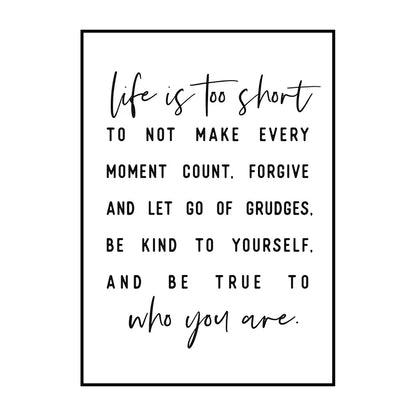 life is too short
TO NOT MAKE EVERY
MOMENT COUNT, FORGIVE
AND LET GO OF GRUDGES,
BE KIND TO YOURSELF,
AND BE TRUE TO
who you are.